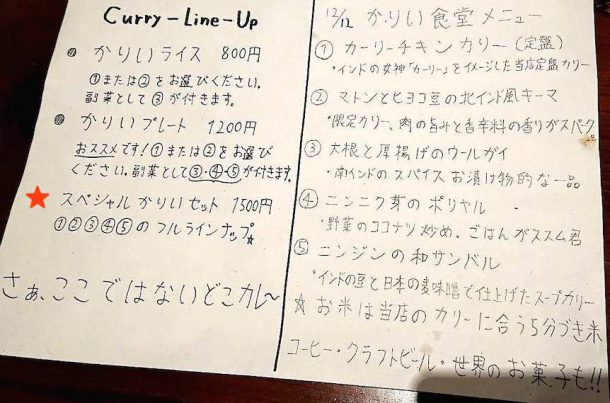 Curry-Line-Up
かりいライス 800円
①または②をお選びください。
副菜として③が付きます。
かりいプレート 1200円
おススメです！①または②をお選び
ください。副菜として③・④・⑤が付きます。
★ スペシャルかりいセット 1500円
①②③④⑤のフルラインナップ☆
さぁ、ここではないどこカレ〜
12/12 かりい食堂メニュー
① カーリーチキンカリー(定盤)
・インドの女神「カーリー」をイメージした当店定盤カリー
② マトンとヒヨコ豆の北インド風キーマ
・限定カリー、肉の旨みと香辛料の香りがスパーク
③ 大根と厚揚げのウールガイ
・南インドのスパイスお漬け物的な一品
④ ニンニク芽のポリヤル
・野菜のココナツ炒め。ごはんがススム君
⑤ ニンジンの和サンバル
・インドの豆と日本の麦味噌で仕上げたスープカリー
☆ お米は当店のカリーに合う5分づき米
コーヒー・クラフトビール・世界のお菓子も!!